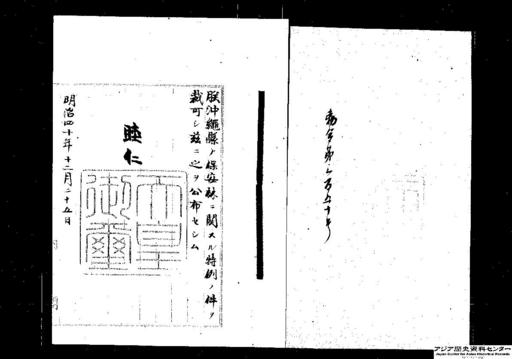 勅令第三百五十号
朕沖繩縣ノ保安林ニ関スル特例ノ件ヲ
裁可シ茲ニ之ヲ公布セシム
睦仁
天皇
御璽
明治四十年十二月二十五日
アジア歴史資料センター
Japan Center for Asian Historical Records